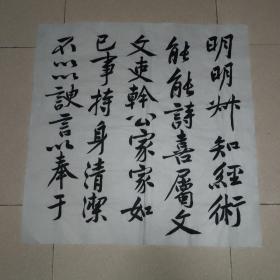 明明艸知經術
能能詩喜屬文
文吏幹公家家如
已事持身清潔
不以以諛言以奉于